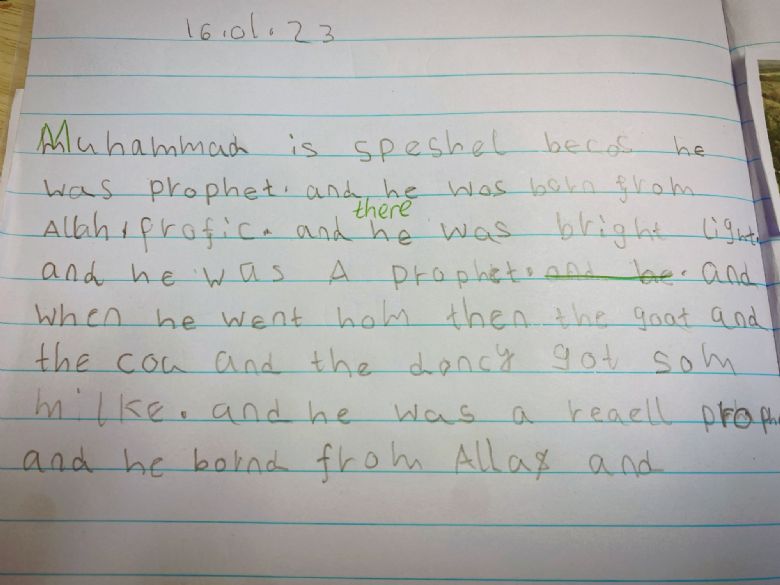 16.01.23
Muhammad is speshel becos he
was prophet. and he was born from
there
Allah, profic. and he was bright light.
and he was A prophet. and he. and
when he went hom then the goat and
the cou and the doncy got som
milke. and he was a reaell proph
and he bornd from Allax and